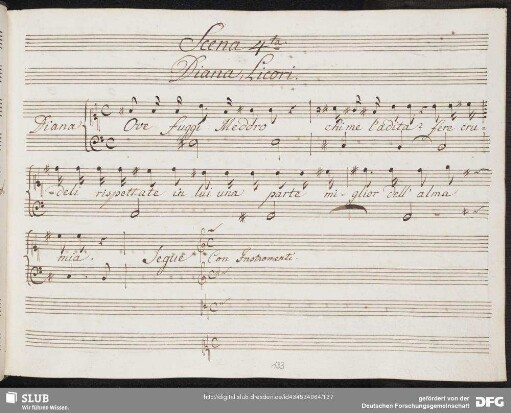 Scena 4ta
Diana, Licori.
Diana Ove fuggi Medoro chi me l'adita? fere cru-
-deli rispettate in lui una parte miglior dell'alma
mia. Segue Con Instromenti
133
SLUB
Wir führen Wissen.
gefördert von der
Deutschen Forschungsgemeinschaft
DFG